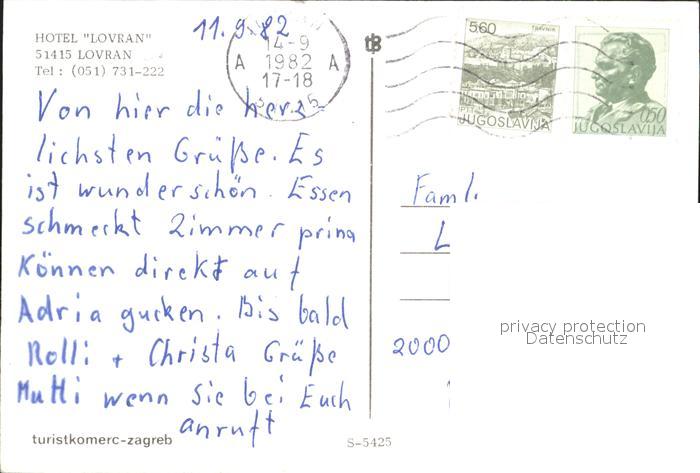 11.9.82
HOTEL "LOVRAN"
51415 LOVRAN
Tel: (051) 731-222
14-9
A 1982 A
17-18
tB
5.60
TRAVNIK
JUGOSLAVIJA
0,50
JUGOSLAVIJA
Von hier die herz-
lichsten Grüße. Es
ist wunderschön. Essen
schmeckt Zimmer prima
Können direkt auf
Adria gucken. Bis bald
Rolli + Christa Grüße
Mutti wenn sie bei Euch
anruft
Faml.
L
2000
privacy protection
Datenschutz
turistkomerc-zagreb
S-5425